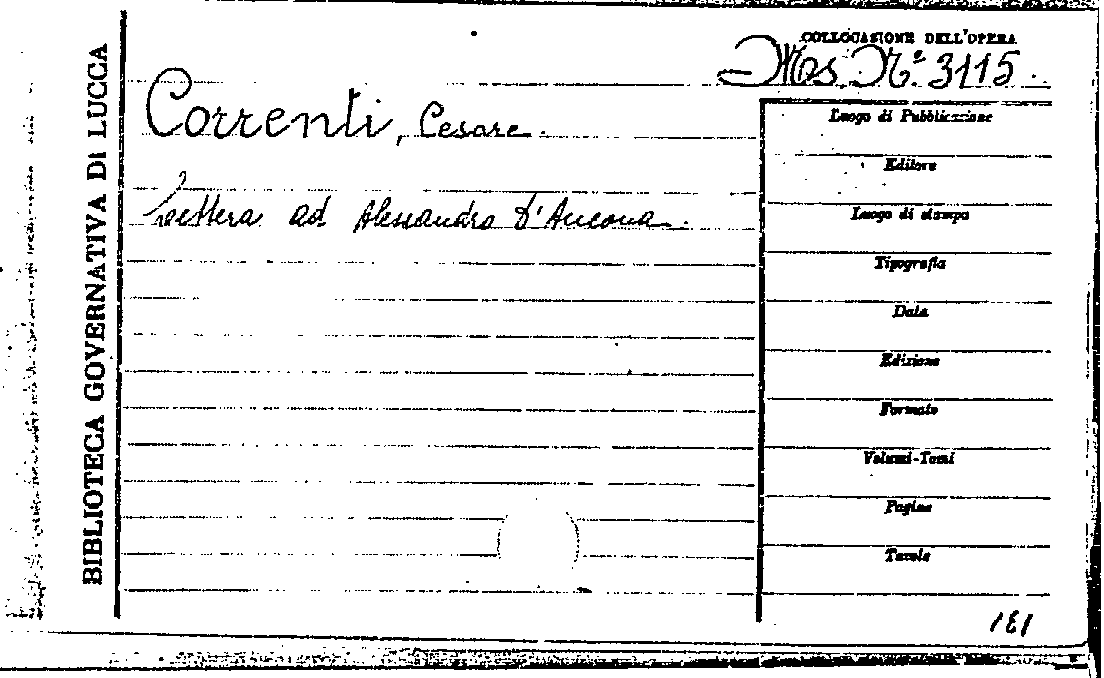 BIBLIOTECA GOVERNATIVA DI LUCCA
COLLOCASIONE DELL'OPERA
Ms. N.º 3115.
Correnti, Cesare.
Lettera ad Alessandro D'Ancona.
Luogo di Pubblicazione
Editore
Luogo di stampa
Tipografia
Data
Edizione
Formato
Volumi-Tomi
Pagine
Tavole